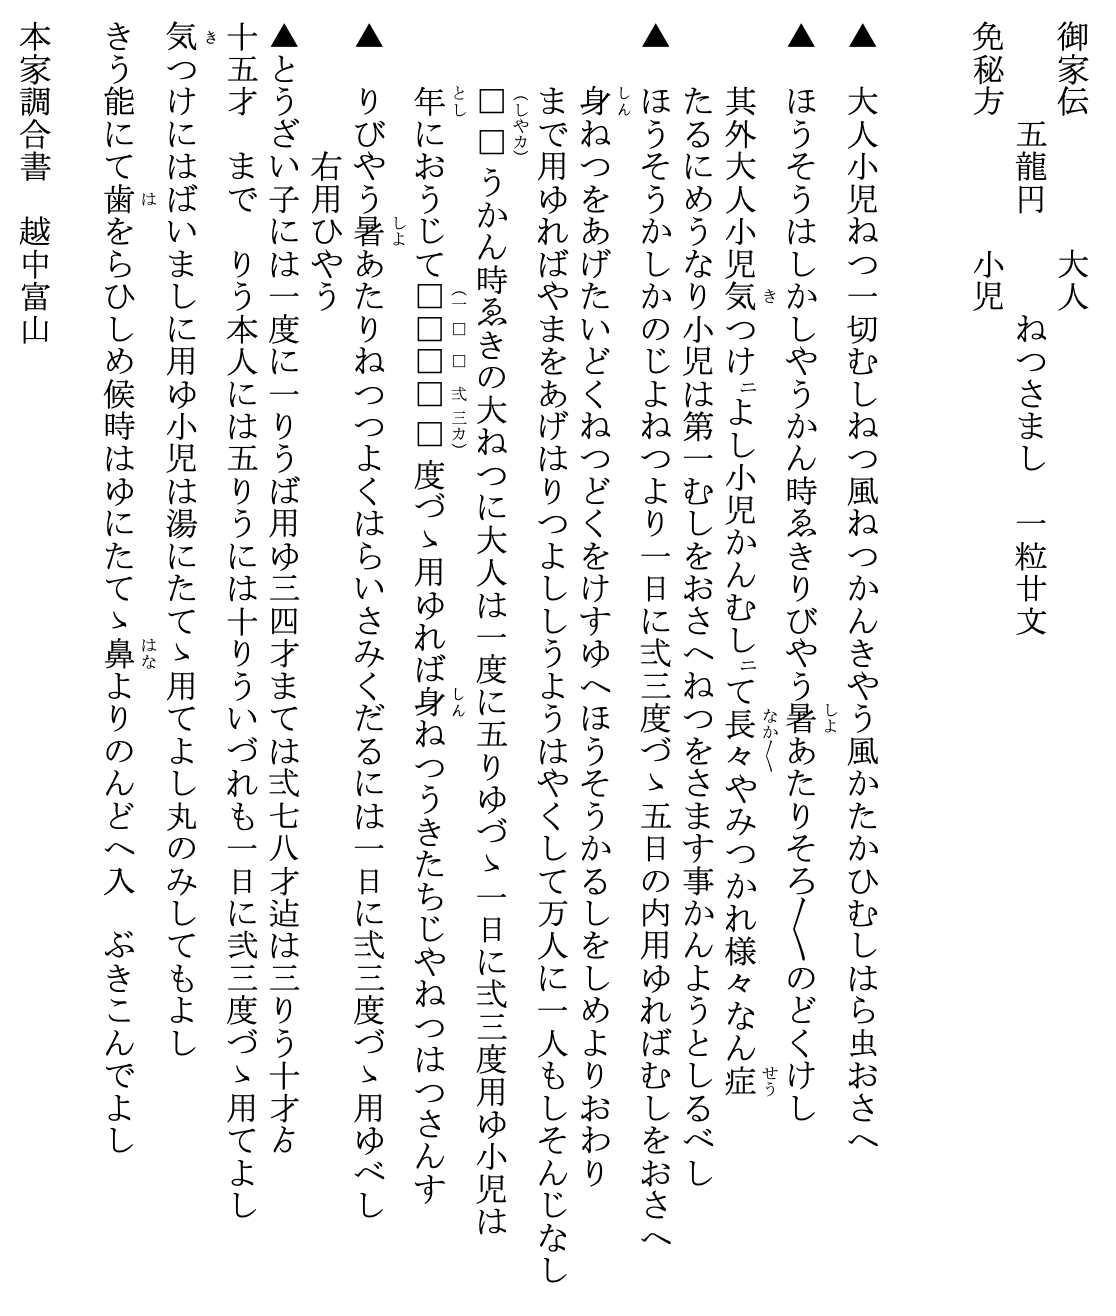 御家伝　　　　大人
五龍円　　　ねつさまし　一粒廿文
免秘方　　　　小児
▲　大人小児ねつ一切むしねつ風ねつかんきやう風かたかひむしはら虫おさへ
▲　ほうそうはしかしやうかん時ゑきりびやう暑あたりそろ〳〵のどくけし
しよ
其外大人小児気つけニよし小児かんむしニて長々やみつかれ様々なん症
き　なか〳〵　せう
たるにめうなり小児は第一むしをおさへねつをさます事かんようとしるべし
▲　ほうそうかしかのじよねつより一日に弍三度づゝ五日の内用ゆればむしをおさへ
身ねつをあげたいどくねつどくをけすゆへほうそうかるしをしめよりおわり
しん
まで用ゆればやまをあげはりつよししうようはやくして万人に一人もしそんじなし
□□うかん時ゑきの大ねつに大人は一度に五りゆづゝ一日に弍三度用ゆ小児は
（しやカ）
年におうじて□□□□□度づゝ用ゆれば身ねつうきたちじやねつはつさんす
とし　（一□□弍三カ）　しん
▲　りびやう暑あたりねつつよくはらいさみくだるには一日に弍三度づゝ用ゆべし
しよ
右用ひやう
▲とうざい子には一度に一りうば用ゆ三四才まては弍七八才迠は三りう十才ゟ
十五才　まで　りう本人には五りうには十りういづれも一日に弐三度づゝ用てよし
気つけにはばいましに用ゆ小児は湯にたてゝ用てよし丸のみしてもよし
き
きう能にて歯をらひしめ候時はゆにたてゝ鼻よりのんどへ入　ぶきこんでよし
は　はな
本家調合書　越中富山